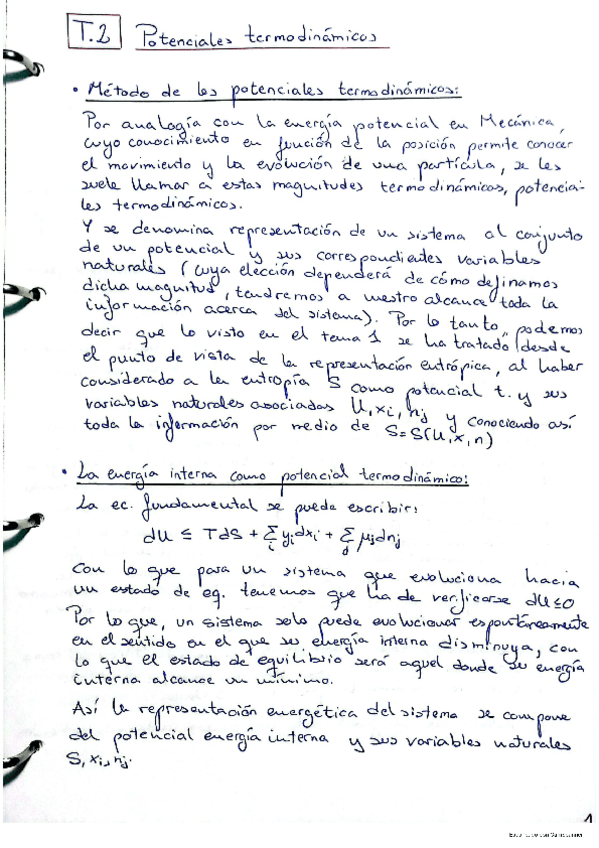 T.2 Potenciales termodinámicos
• Método de los potenciales termodinámicos:
Por analogía con la energía potencial en Mecánica,
cuyo conocimiento en función de la posición permite conocer
el movimiento y la evolución de una partícula, se les
suele llamar a estas magnitudes termodinámicas, potencia-
les termodinámicos.
Y se denomina representación de un sistema al conjunto
de un potencial y sus correspondientes variables
naturales (cuya elección dependerá de cómo definamos
dicha magnitud, tendremos a nuestro alcance toda la
información acerca del sistema). Por lo tanto, podemos
decir que lo visto en el tema 1 se ha tratado desde
el punto de vista de la representación entrópica, al haber
considerado a la entropía S como potencial t. y sus
variables naturales asociadas U, xi, nj y conociendo así
toda la información por medio de S=S(U,x,n)
• La energía interna como potencial termodinámico:
La ec. fundamental se puede escribir:
dU ≤ TdS + Σi yidxi + Σj μjdnj
Con lo que para un sistema que evoluciona hacia
un estado de eq. tenemos que ha de verificarse dU≤0
Por lo que, un sistema solo puede evolucionar espontáneamente
en el sentido en el que su energía interna disminuya, con
lo que el estado de equilibrio será aquel donde su energía
interna alcance un mínimo.
Así la representación energética del sistema se compone
del potencial energía interna y sus variables naturales
S, xi, nj.
1